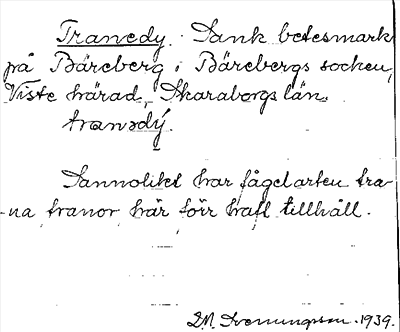 Tranedy. Sank betesmark
på Bäreberg i Bärebergs socken,
Viste härad, Skaraborgs län.
tranədý.
Sannolikt har fågelarten tra-
-na tranor här förr haft tillhåll.
1939.